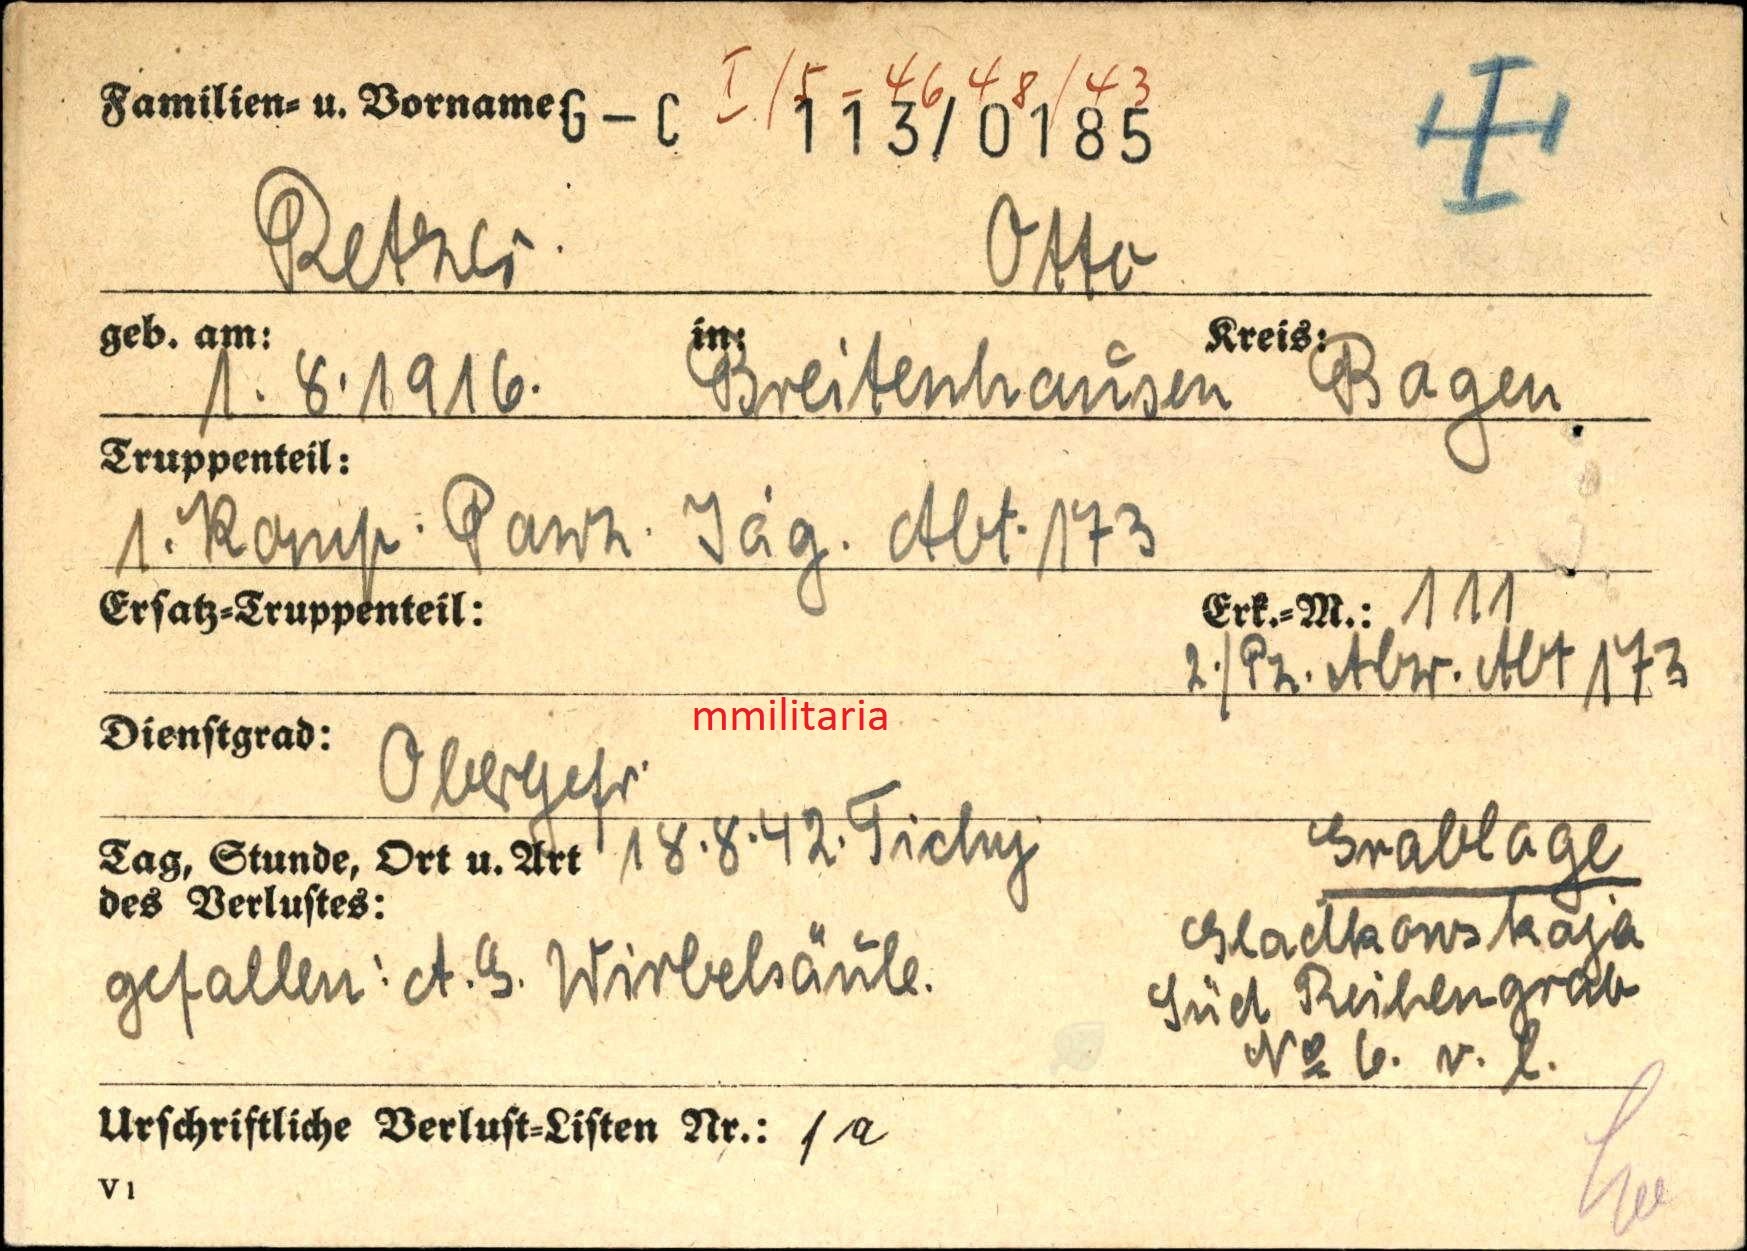 I/5-4648/43
Familien- u. Vorname: G-C 113/0185
Otto
geb. am: in: Kreis:
1.8.1916. Breitenhausen Bagen
Truppenteil:
1. Komp. Panz. Jäg. Abt. 173
Ersatz-Truppenteil: Erk.-M.: 111
2./Pz. Abw. Abt 173
mmilitaria
Dienstgrad: Obergefr.
Tag, Stunde, Ort u. Art 18.8.42. Tichij Grablage
des Verlustes: Gladkowskaja
gefallen: A.G. Wirbelsäule. Süd Reihengrab
№ 6. v. l.
Urschriftliche Verlust-Listen Nr.: 1a
V1